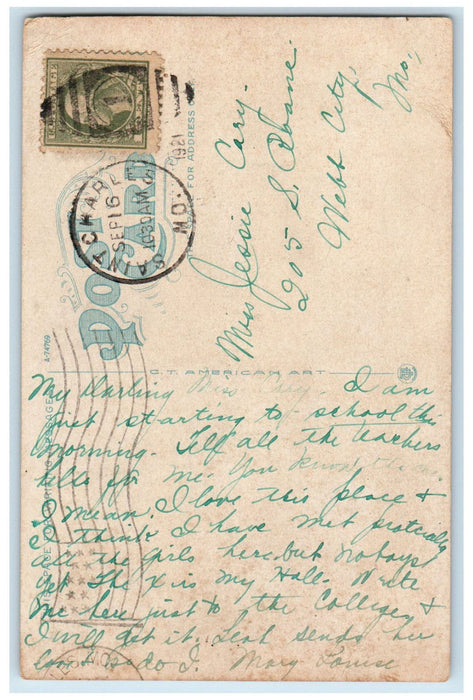 POST CARD
FOR ADDRESS
SAINT CHARLES
SEP 16
10:30 AM
1921
MO.
1
Miss Jessie Cary.
2905 S. Roane
Webb City,
Mo,
A-74769
C.T. AMERICAN ART
My Darling Miss Cary. I am
just starting to school this
morning. Tell all the teachers
hello for me. You know
I mean. I love this place &
I think I have met practically
all the girls here but no boys
yet. The X is my Hall. Write
me here just to the College &
I will get it. Leah sends her
love & so do I. Mary Louise